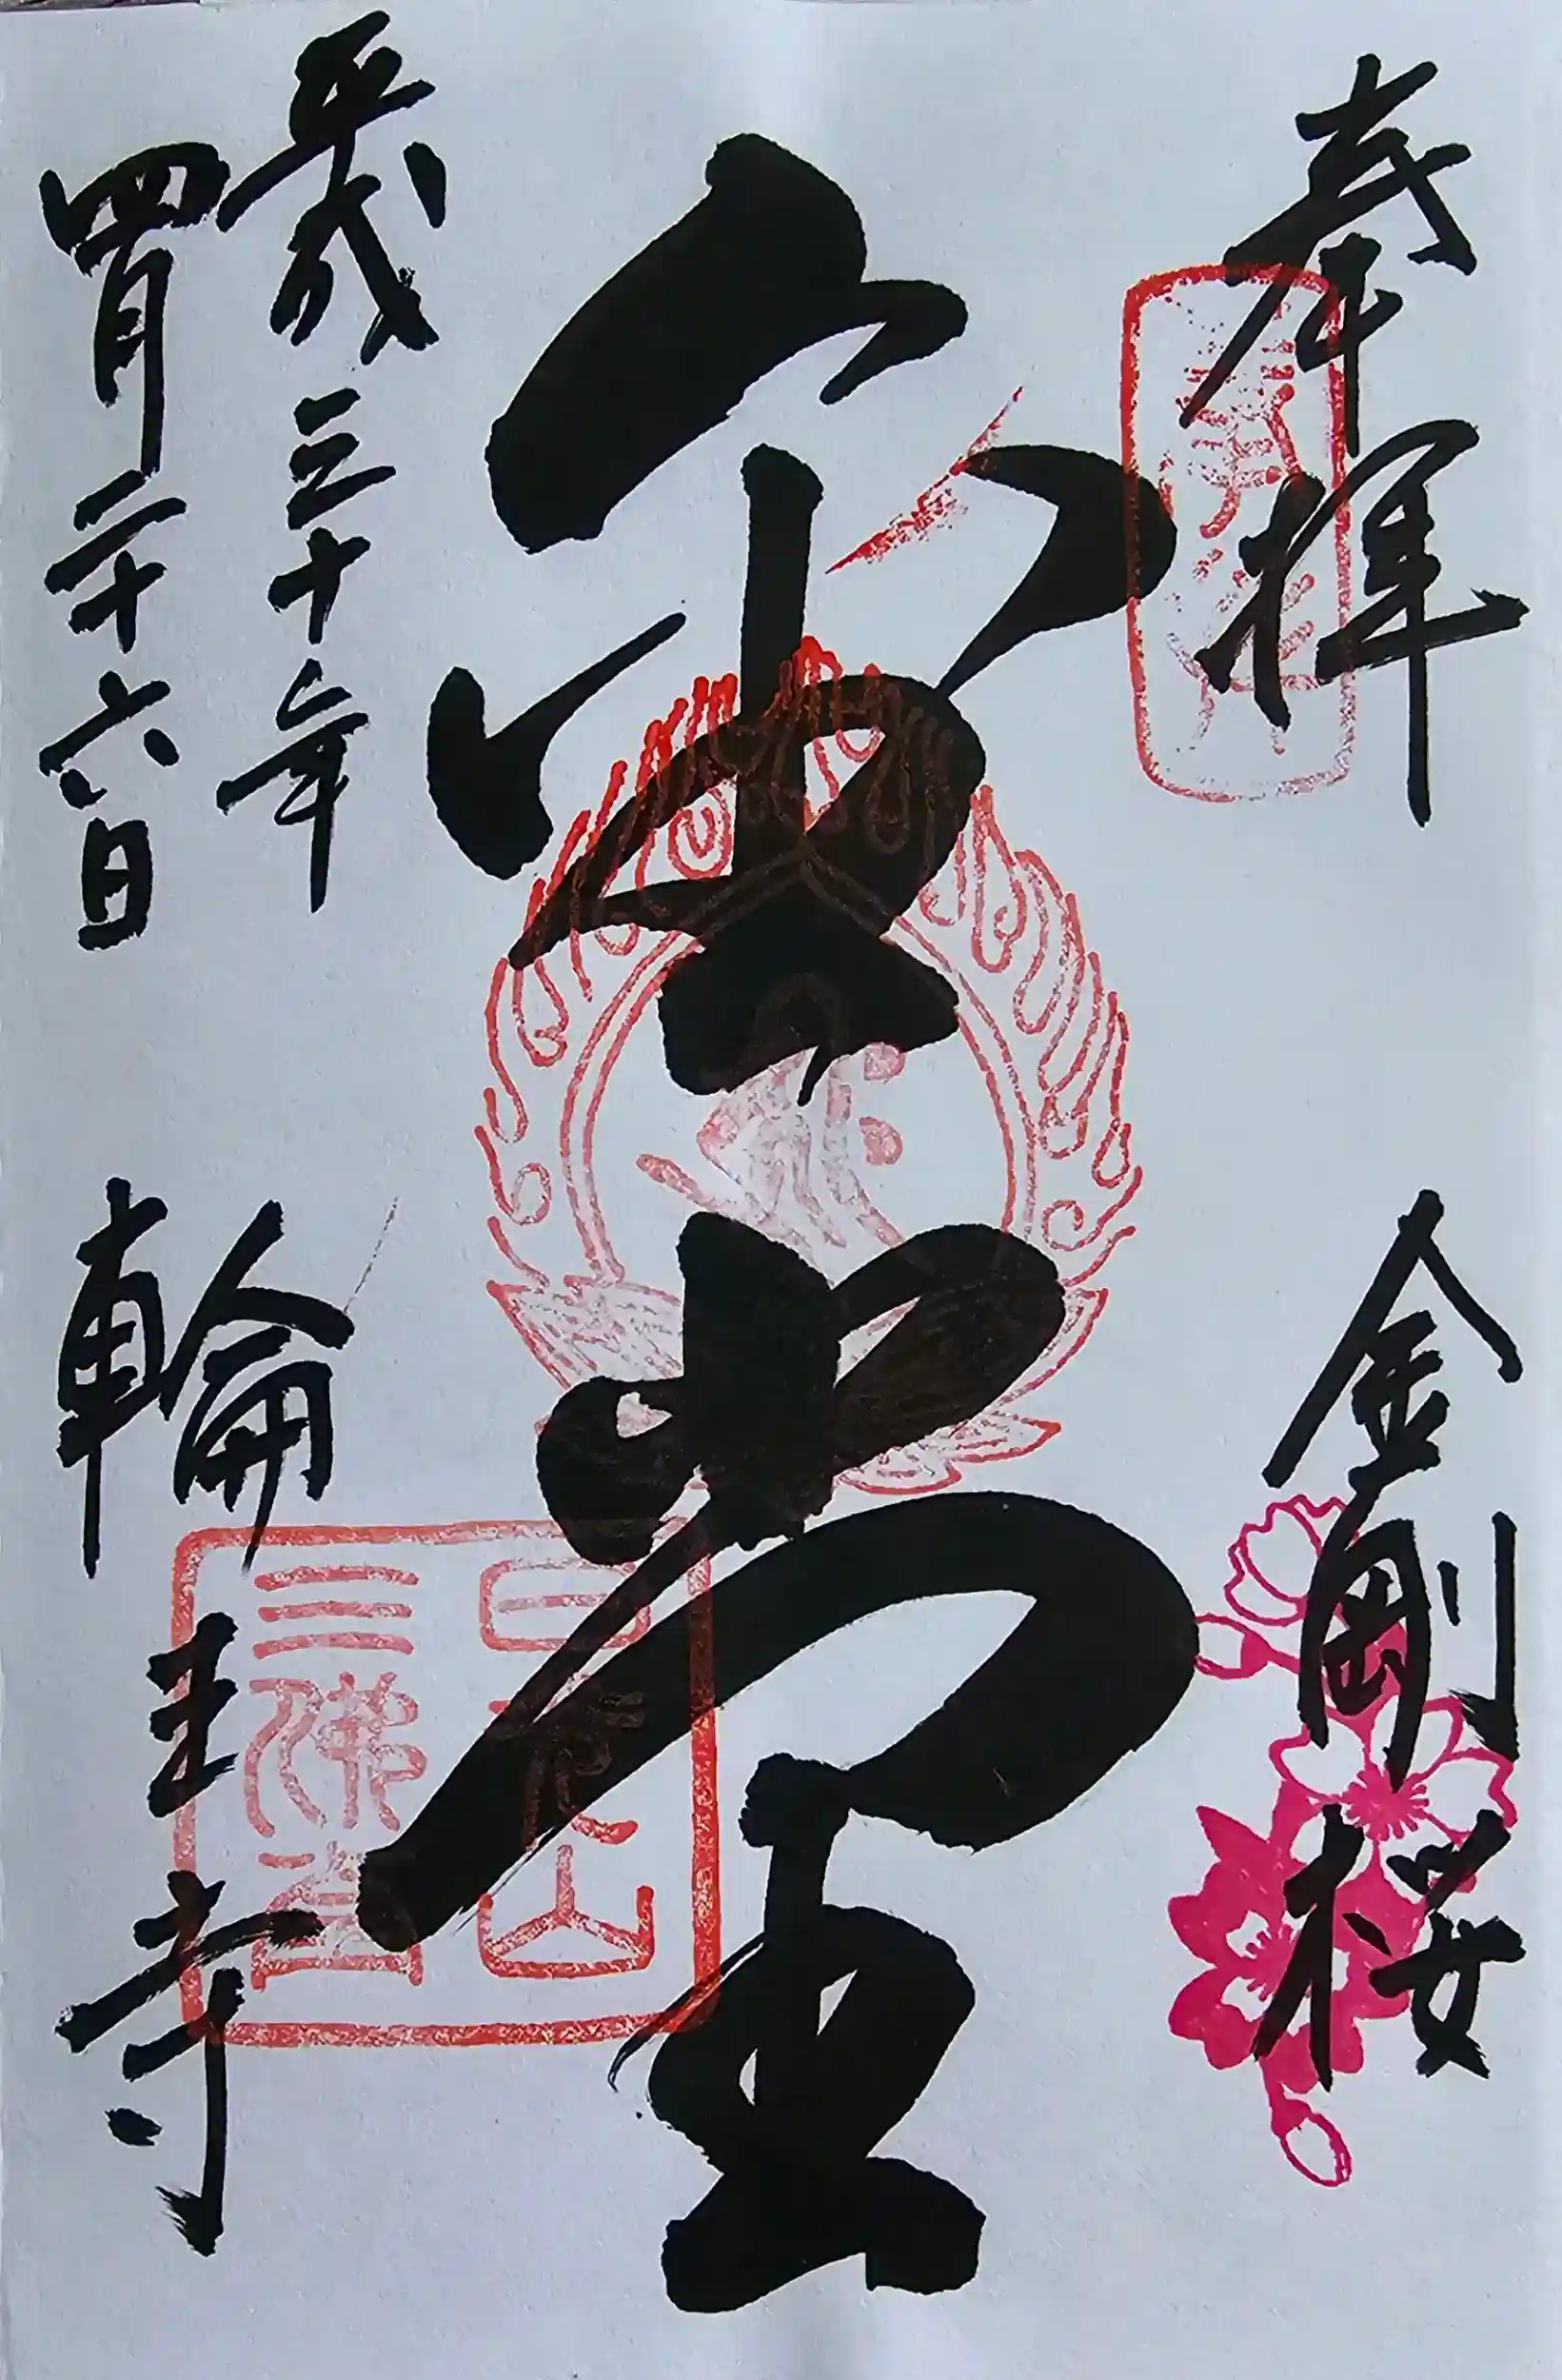 奉拝
金剛桜
金堂
平成三十年
四月二十六日
輪王寺
日光山
三佛堂